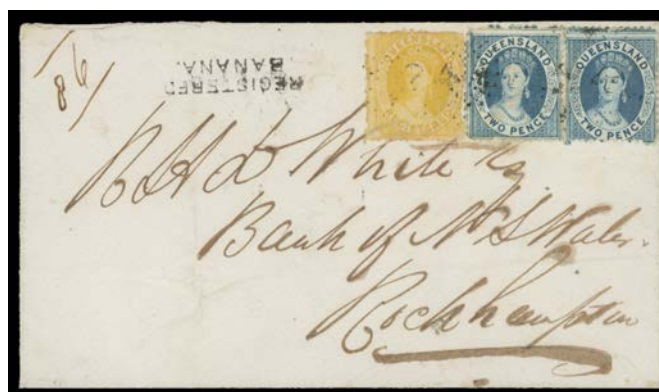 86/
REGISTERED
BANANA.
QUEENSLAND
TWO PENCE
QUEENSLAND
TWO PENCE
R H D White Esq
Bank of N S Wales
Rockhampton